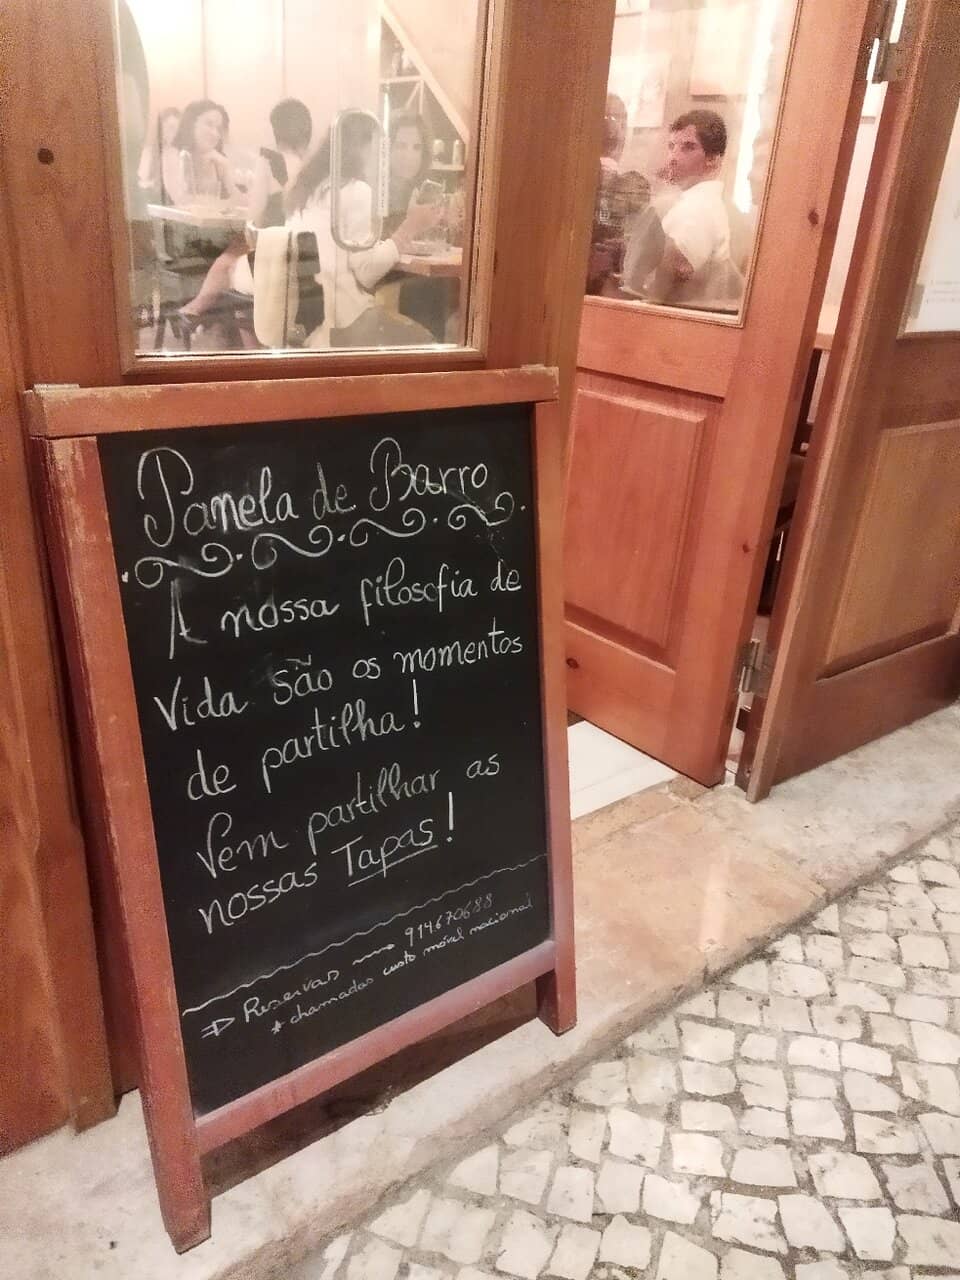 Panela de Barro
A nossa filosofia de
vida são os momentos
de partilha!
Vem partilhar as
nossas Tapas!
⇒ Reservas → 914670688
* chamadas custo móvel nacional